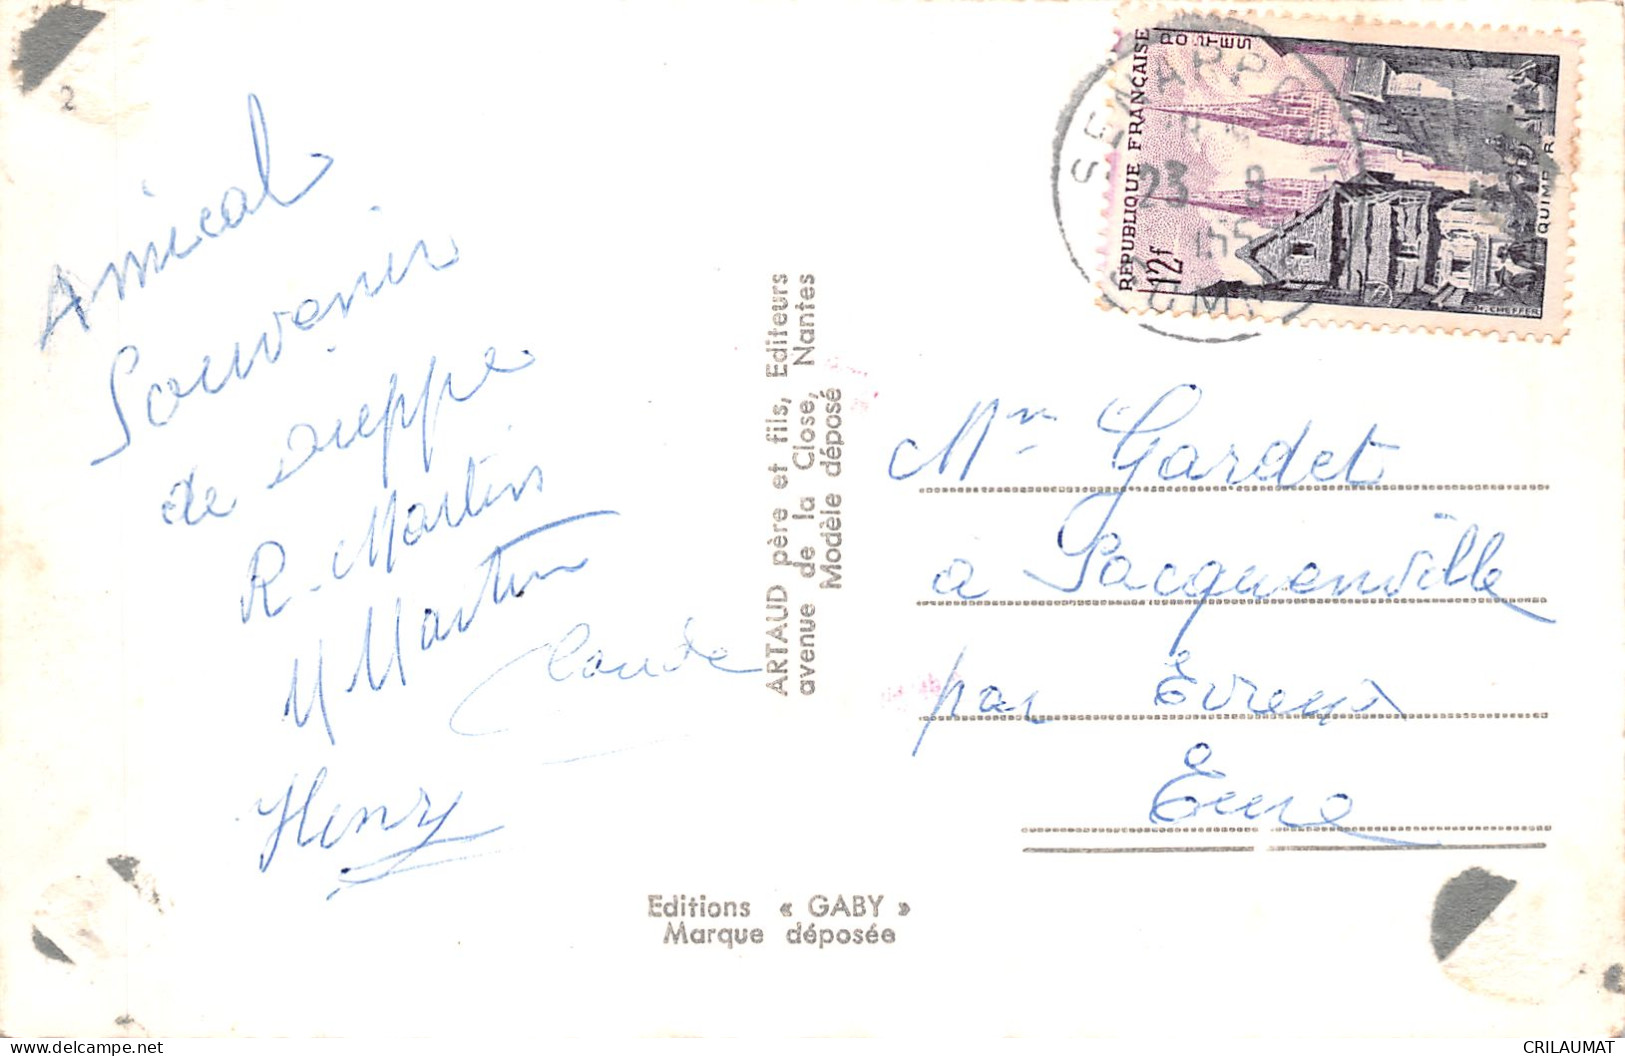 2
Amical
Souvenir
de Dieppe
R. Martin
M Martin
Claude
Henry
ARTAUD père et fils, Editeurs
avenue de la Close, Nantes
Modèle déposé
Editions « GABY »
Marque déposée
REPUBLIQUE FRANÇAISE
POSTES
12f
QUIMPER
CHEFFER
23 8
Mr Gardet
a Sacquenville
par Evreux
Eure
CRILAUMAT